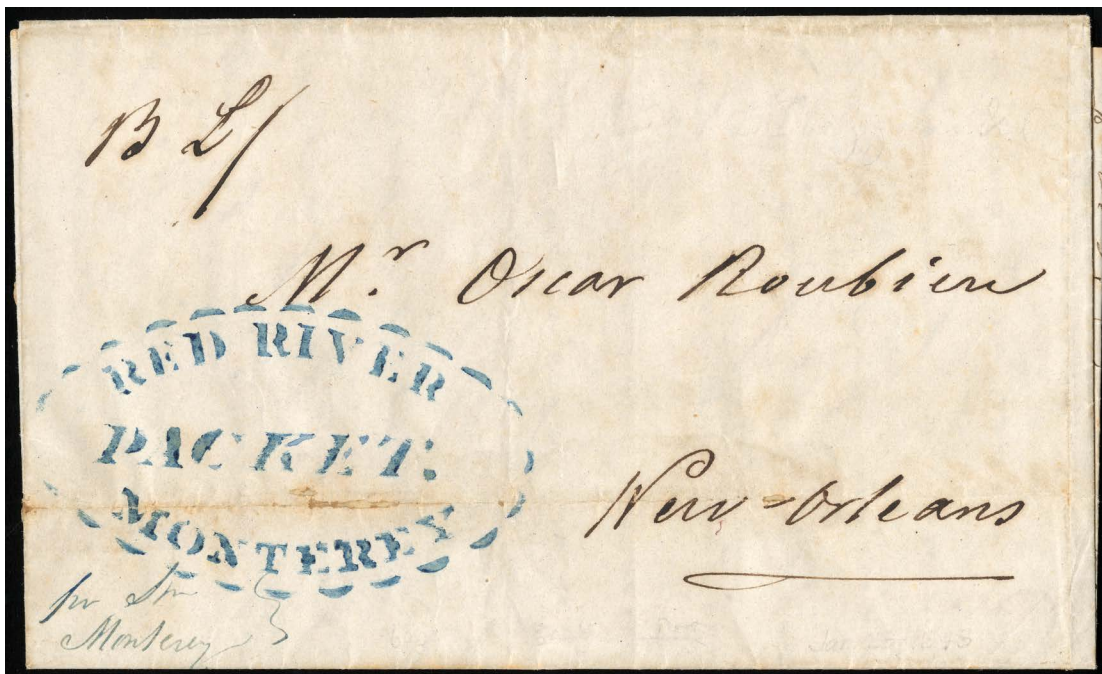 B L/
Mr Oscar Roubieu
RED RIVER
PACKET.
MONTEREY
New-Orleans
pr Stm
Monterey